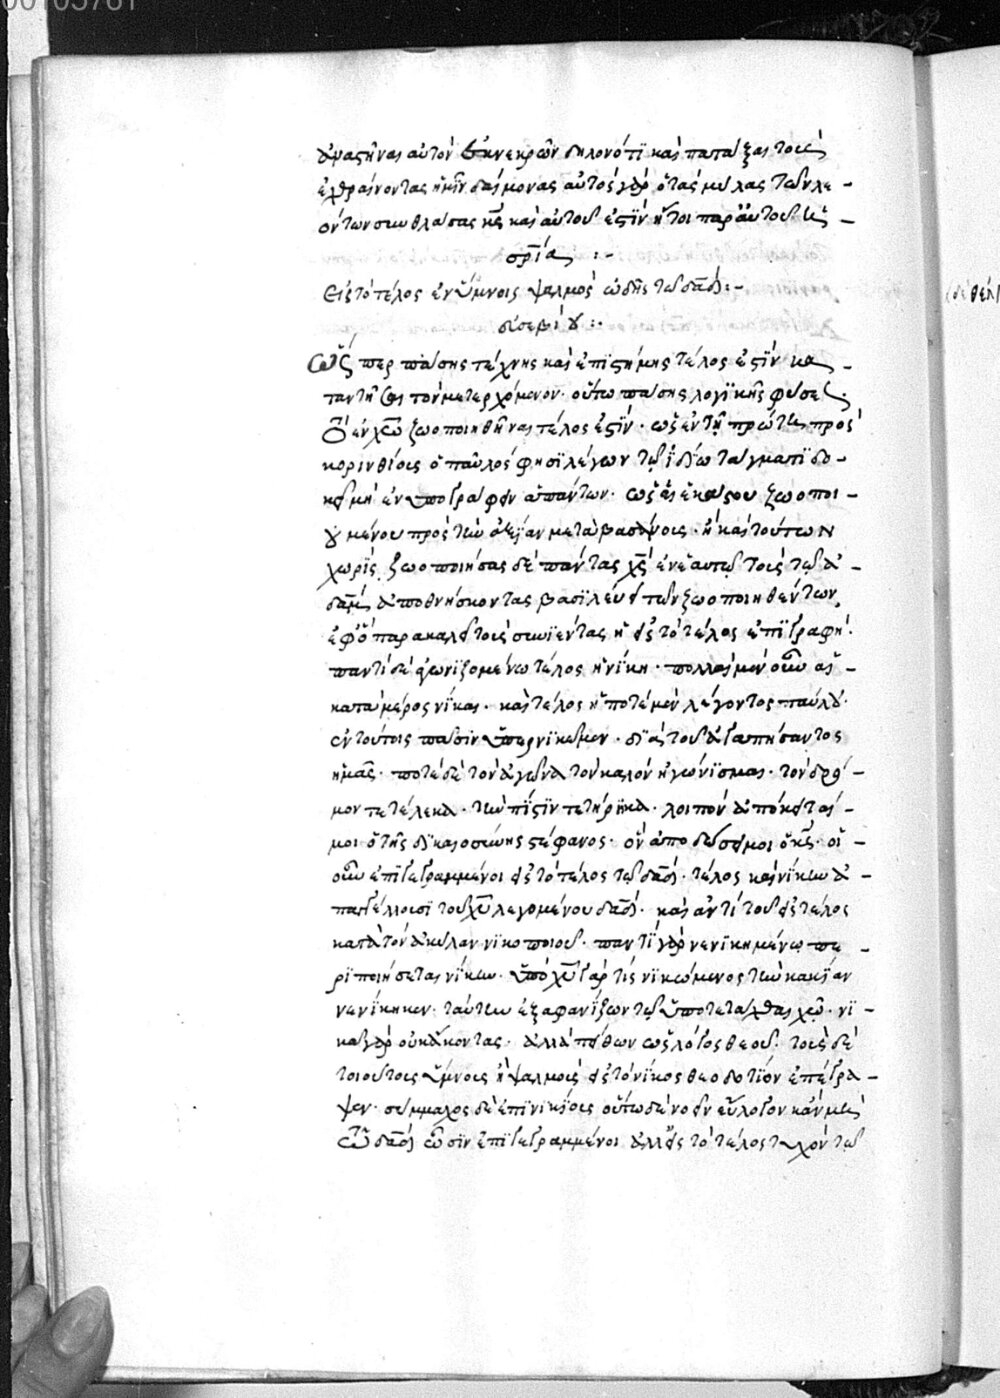 00105761
ἀναστῆναι αὐτὸν ἐκ νεκρῶν δηλονότι καὶ πατάξαι τοὺς
ἐχθραίνοντας ἡμῖν δαίμονας αὐτὸς γὰρ ὁ τὰς μύλας τῶν λε -
όντων συνθλάσας κς καὶ αὐτοῦ ἐστὶν ἤτοι παρ' αὐτοῦ ἡ σ -
ωρία :-
Εἰς τὸ τέλος ἐν ὕμνοις ψαλμὸς ὠδῆς τῶ δαδ :-
εὐσεβίου :-
Ὥσπερ πάσης τέχνης καὶ ἐπιστήμης τέλος ἐστὶν κα -
ταντῆσαι τὸν μετερχόμενον. οὕτω πάσης λογικῆς φύσεως
τὸ ἐν χω ζωοποιηθῆναι τέλος ἐστίν. ὡς ἐν τῇ πρώτῃ πρὸς
κορινθίους ὁ παῦλος φησὶ λέγων τῶ ἰδίω τάγματι δο -
κεῖ μὴ ἐν ὑπογράφειν ἁπάντων. ὡς ἑκάστου ζωοποι -
ουμένου πρὸς τὴν ἀξίαν μεταβάσεις. ἢ καὶ τούτων
χωρὶς ζωοποιήσας δὲ πάντας χς ἐν ἑαυτῶ τοὺς τῶ ἀ -
δαμ ἀποθνήσκοντας βασιλεύει τῶν ζωοποιηθέντων
ἐφ' ὃ παρακαλεῖ τοὺς συνιέντας ἡ εἰς τὸ τέλος ἐπιγραφή.
παντὶ δὲ ἀγωνιζομένω τέλος ἡ νίκη. πολλαὶ μὲν οὖν αἱ -
κατὰ μέρος νίκαι. καὶ τέλος ἥ ποτε μὲν λέγοντος παύλου.
ἐν τούτοις πᾶσιν ὑπερνικῶμεν. διὰ τοῦ ἀγαπήσαντος
ἡμᾶς. ποτὲ δὲ τὸν ἀγῶνα τὸν καλὸν ἠγώνισμαι. τὸν δρό -
μον τετέλεκα. τὴν πίστιν τετήρηκα. λοιπὸν ἀπόκειταί -
μοι ὁ τῆς δικαιοσύνης στέφανος. ὃν ἀποδώσει μοι ὁ κς. οἱ -
οὖν ἐπιγεγραμμένοι εἰς τὸ τέλος τῶ δαδ. τέλος καὶ νίκην ἀ -
παγγέλλουσι τοῦ χυ λεγομένου δαδ. καὶ ἀντὶ τοῦ εἰς τέλος
κατὰ τὸν ἀκύλαν νικοποιοῦ. παντὶ γὰρ νενικημένω πε -
ριποιήσεται νίκην. ὑπὸ χυ γὰρ τὶς νικώμενος τὴν κακίαν
νενίκηκεν. ταύτην ἐξαφανίζων τῶ ὑποτετάχθαι χω. νι -
κᾷ γὰρ οὐκ ἄκοντας. ἀλλὰ πείθων ὡς λόγος θεοῦ. τοὺς δὲ
τοιούτοις ὕμνοις ἢ ψαλμοῖς εἰς τὸ νῖκος θεοδοτίον ἐπέγρα -
ψεν. σύμμαχος δὲ ἐπινικίους οὕτω δὲ νοεῖν εὔλογον κἂν μὲν
τῶ δαδ ὦσιν ἐπιγεγραμμένοι ἀλλ' εἰς τὸ τέλος τυχὸν τῶ